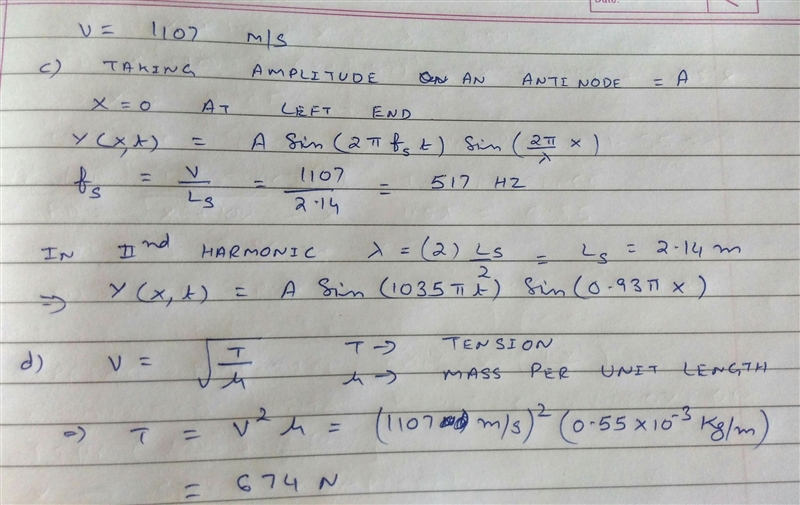 Date:
V = 1107 m/s
c) TAKING AMPLITUDE ON AN ANTINODE = A
X = 0 AT LEFT END
Y(x,t) = A Sin (2π fs t) Sin (2π/λ x)
fs = V/Ls = 1107/2.14 = 517 HZ
IN IInd HARMONIC λ = (2) Ls/2 = Ls = 2.14 m
⇒ Y(x,t) = A Sin (1035 π t) Sin (0.93 π x)
d) V = √(T/μ) T → TENSION
μ → MASS PER UNIT LENGTH
⇒ T = V² μ = (1107 m/s)² (0.55 × 10⁻³ Kg/m)
= 674 N